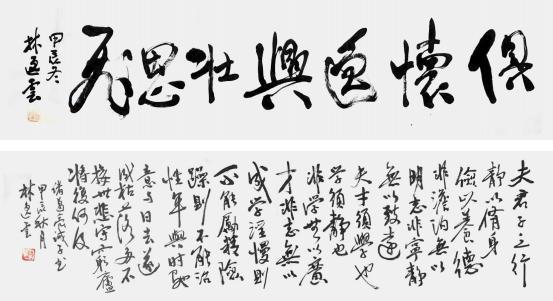 俱懷逸興壯思飛
甲辰冬
林逸雲
夫君子之行
靜以脩身
儉以養德
非澹泊無以
明志非寧靜
無以致遠
夫才須學也
學須靜也
非學無以廣
才非志無以
成學淫慢則
不能勵精險
躁則不能治
性年與時馳
意與日去遂
成枯落多不
接世悲守窮廬
將復何及
諸葛亮誡子書
甲辰秋月
林逸雲